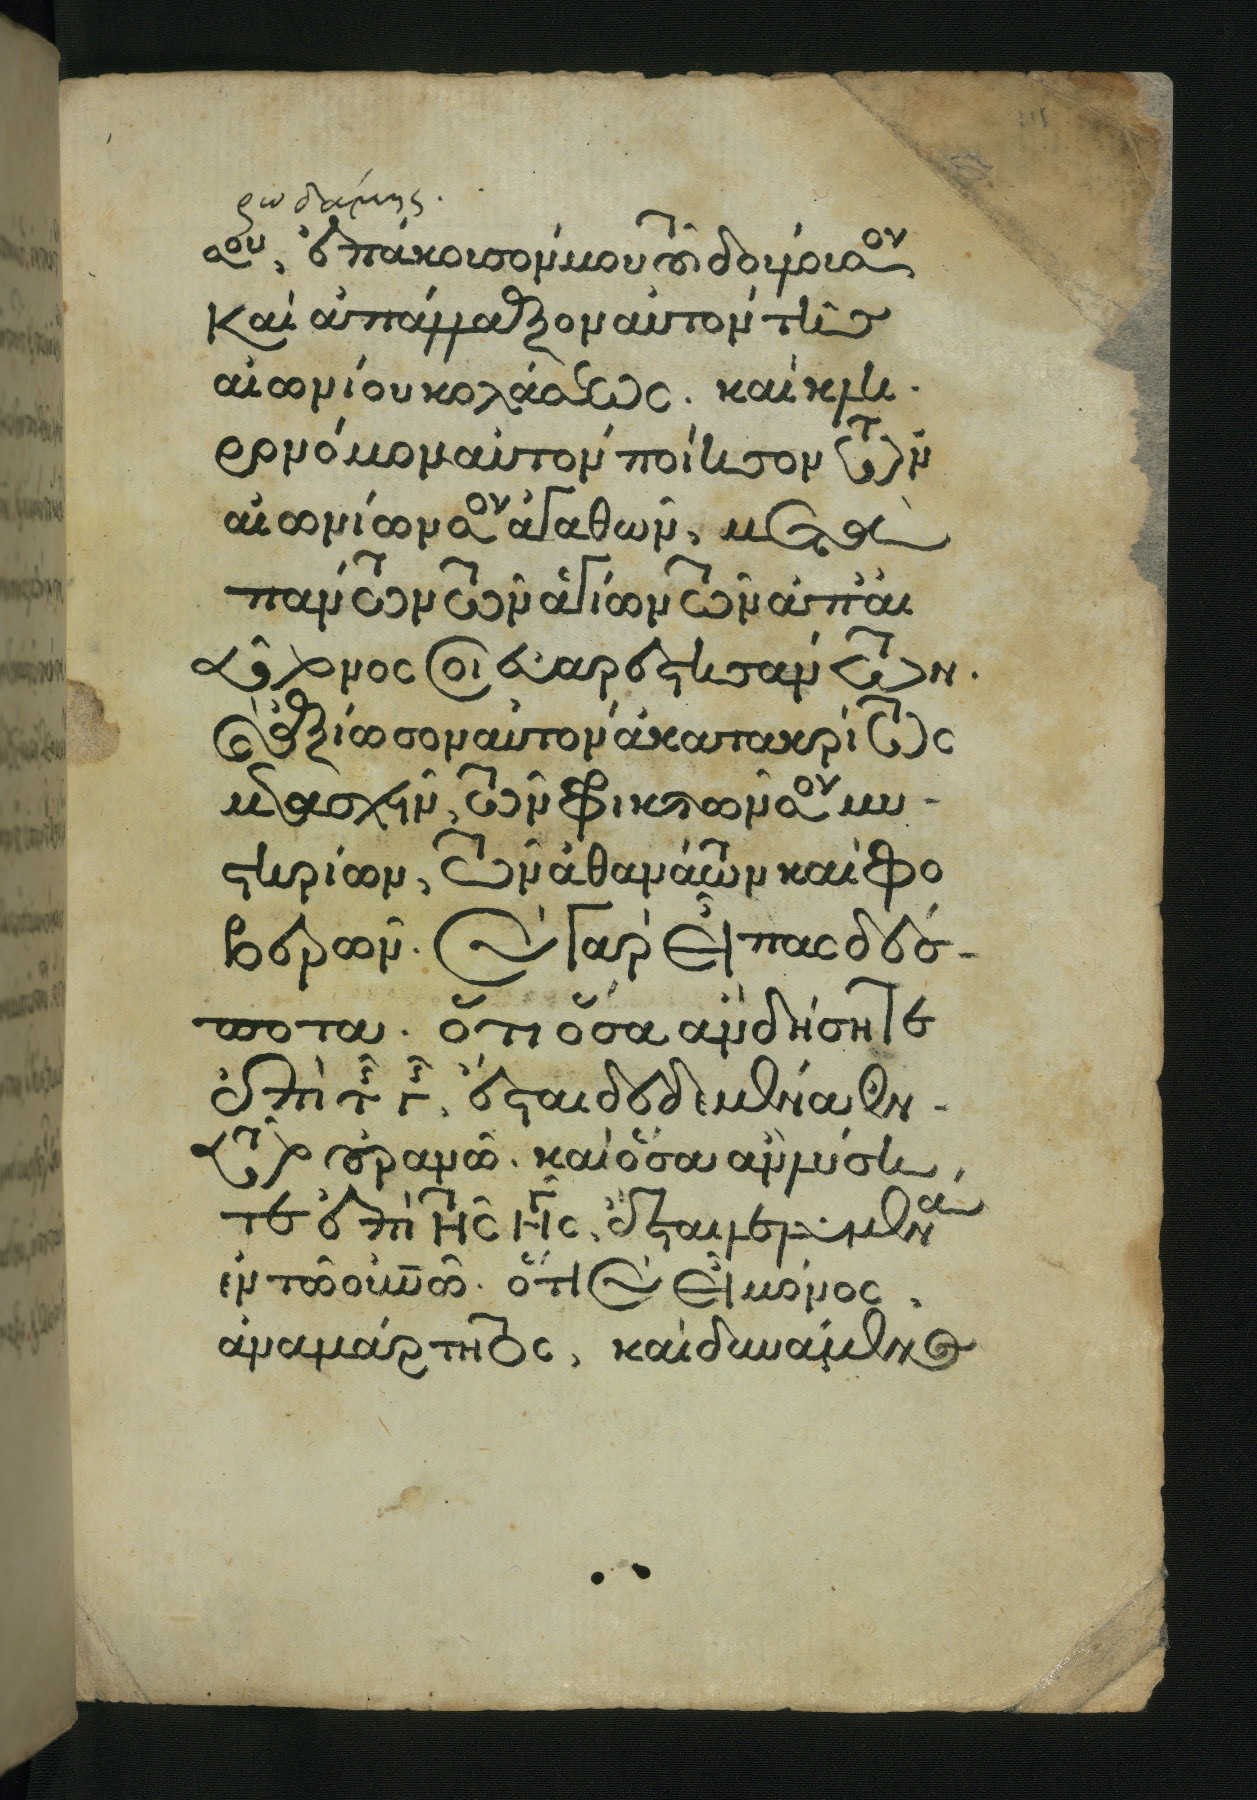 σου, ἐπάκουσόν μου
Καὶ ἀπάλλαξον αὐτὸν τῆς
αἰωνίου κολάσεως. καὶ κλη
ρονόμον αὐτὸν ποίησον τῶν
αἰωνίων σου ἀγαθῶν, μετὰ
πάντων τῶν ἁγίων τῶν ἀπ' αἰ
ῶνος σοι εὐαρεστησάντων.
καὶ ἀξίωσον αὐτὸν ἀκατακρίτως
μετασχεῖν, τῶν φρικτῶν σου μυ-
στηρίων, τῶν ἀθανάτων καὶ φο
βερῶν. Σὺ γὰρ εἶπας δέσ-
ποτα. ὅτι ὅσα ἂν δήσητε
ἐπὶ τῆς γῆς, ἔσται δεδεμένα ἐν
τῷ οὐρανῷ. καὶ ὅσα ἂν λύση
τε ἐπὶ τῆς γῆς, ἔσται λελυμένα
ἐν τῷ οὐνῷ. ὅτι σὺ εἶ μόνος,
ἀναμάρτητος, καὶ δυνάμενος